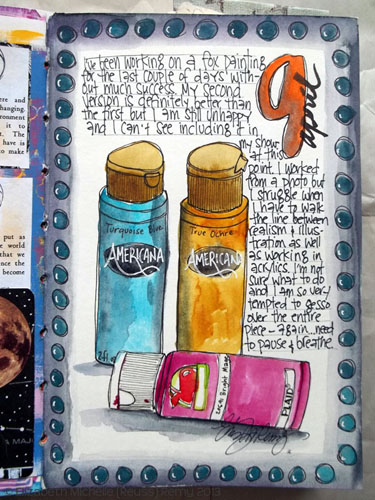 I've been working on a fox painting
for the last couple of days with-
out much success. My second
version is definitely better than
the first but I am still unhappy
and I can't see including it in
my show
at this
point. I worked
from a photo but
I struggle when
I have to walk
the line between
realism & illus-
tration as well
as working in
acrylics. I'm not
sure what to do
and I am so very
tempted to gesso
over the entire
piece - again...need
to pause & breathe.
9
april
Turquoise Blue
AMERICANA
2floz
True Ochre
AMERICANA
Bright Mag
PLAID
ere and
changing.
ronment
it to
t. The
have is
to make
put as
e world
that we
nce the
become
A MAJ
Elizabeth Michelle (Reuss) Remy 2013